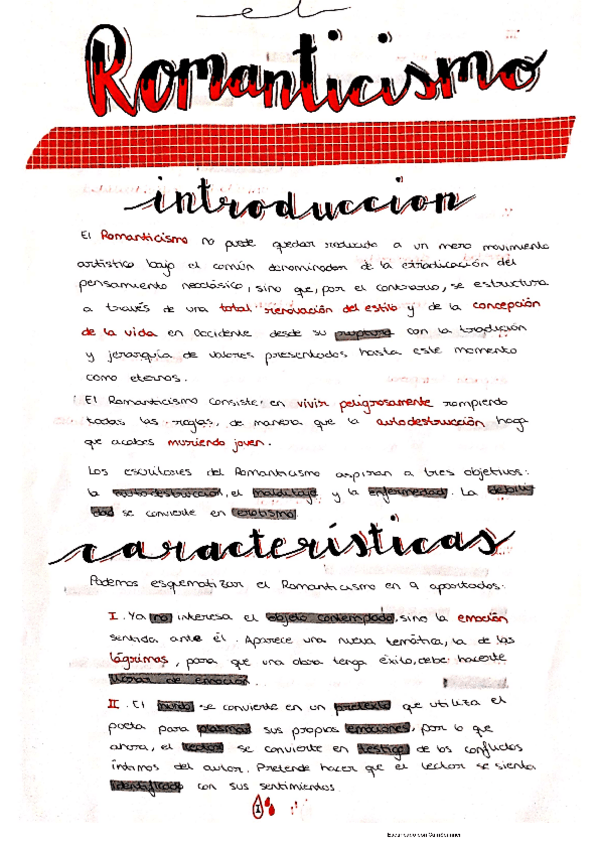 el
Romanticismo
introduccion
El Romanticismo no puede quedar reducido a un mero movimiento
artístico bajo el común denominador de la erradicación del
pensamiento neoclásico, sino que, por el contrario, se estructura
a través de una total renovación del estilo y de la concepción
de la vida en Occidente desde su ruptura con la tradición
y jerarquía de valores presentados hasta este momento
como eternos.
El Romanticismo consiste en vivir peligrosamente rompiendo
todas las reglas, de manera que la autodestrucción haga
que acabes muriendo joven.
Los escritores del Romanticismo aspiran a tres objetivos:
la autodestrucción, el malditaje y la enfermedad. La debili
dad se convierte en erotismo.
características
Podemos esquematizar el Romanticismo en 9 apartados:
I. Ya no interesa el objeto contemplado, sino la emoción
sentida ante él. Aparece una nueva temática, la de las
lágrimas, para que una obra tenga éxito, debe hacerte
llorar de emoción.
II. El mundo se convierte en un pretexto que utiliza el
poeta para plasmar sus propias emociones, por lo que
ahora, el lector se convierte en testigo de los conflictos
íntimos del autor. Pretende hacer que el lector se sienta
identificado con sus sentimientos.
1
Escaneado con CamScanner